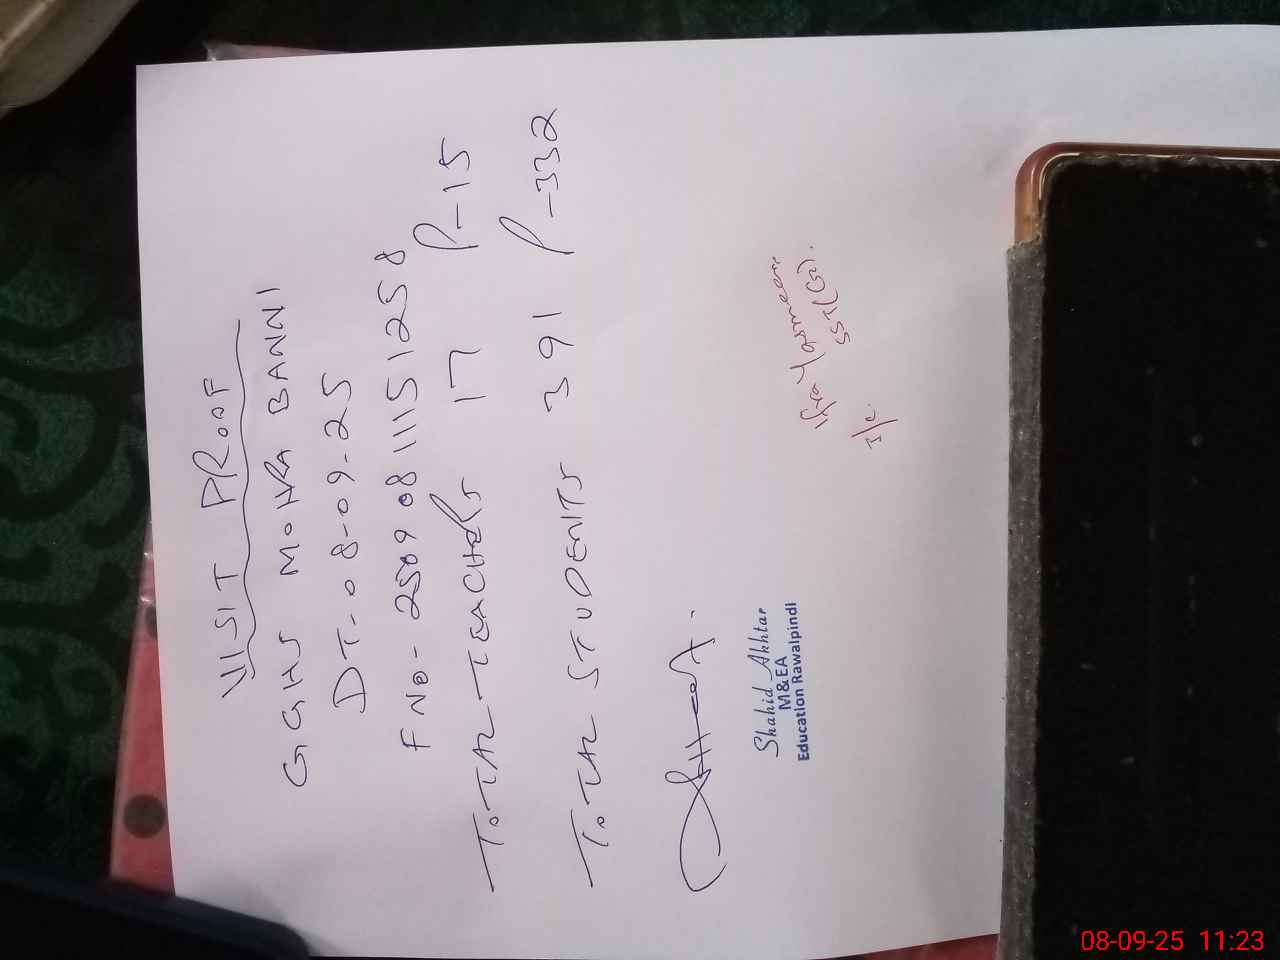 VISIT PROOF
GGHS MOHRA BANNI
DT-08-09-25
F NO- 25090811151258
TOTAL TEACHERS 17 P-15
TOTAL STUDENTS 391 P-332
Shahid Akhtar
M&EA
Education Rawalpindi
Iqra Yasmeen
SST(G).
I/C
08-09-25 11:23